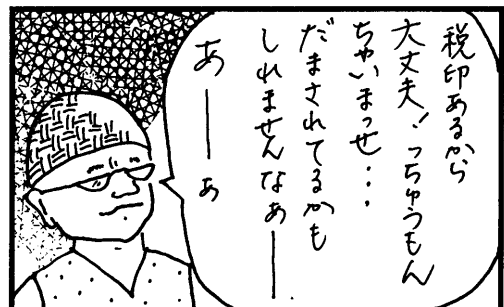 税印あるから
大丈夫!っちゅうもん
ちゃいまっせ・・・
だまされてるかも
しれませんなぁーー
あーーぁ